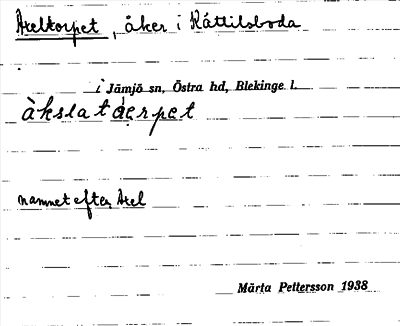 Axeltorpet, åker i Kättilsboda
i Jämjö sn, Östra hd, Blekinge l.
àkslatárpet
namnet efter Axel
Märta Pettersson 1938